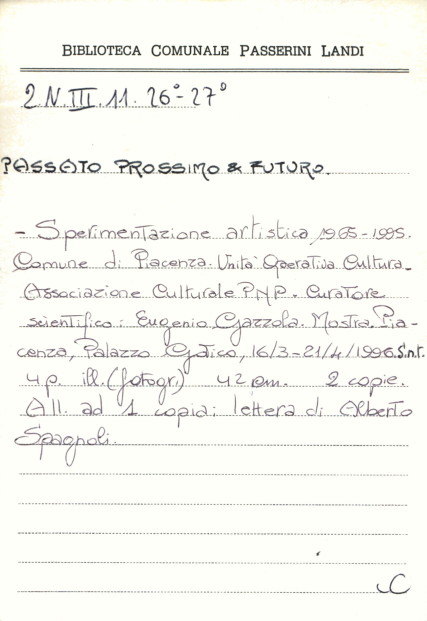 BIBLIOTECA COMUNALE PASSERINI LANDI
2.N.III.11.26°-27°
PASSATO PROSSIMO & FUTURO.
- Sperimentazione artistica 1965-1995.
Comune di Piacenza. Unità Operativa Cultura_
Associazione Culturale P.N.P. Curatore
scientifico: Eugenio Gazzola. Mostra. Pia-
cenza, Palazzo Gotico, 16/3-21/4/1996. S.n.t.
4 p. ill. (fotogr.) 42 cm. 2 copie.
All. ad 1 copia: lettera di Alberto
Spagnoli.
C